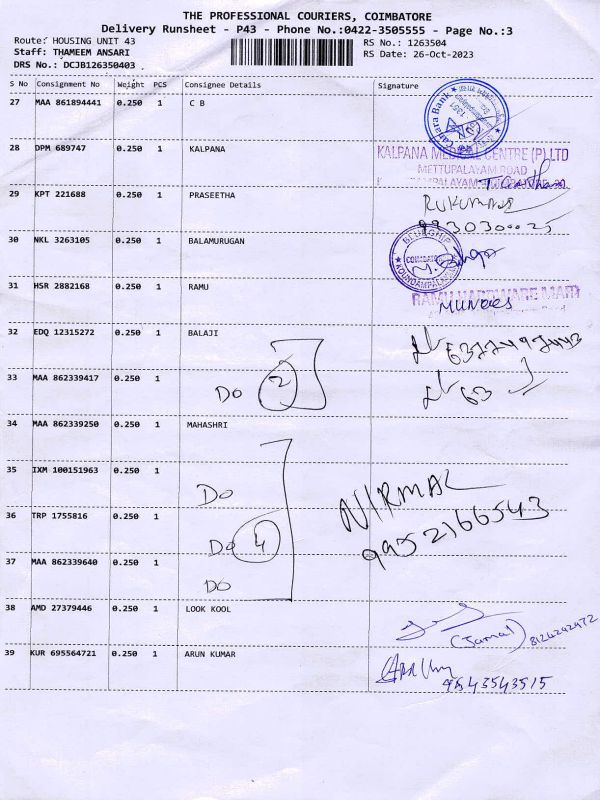 THE PROFESSIONAL COURIERS, COIMBATORE
Delivery Runsheet - P43 - Phone No.:0422-3505555 - Page No.:3
Route: HOUSING UNIT 43 RS No.: 1263504
Staff: THAMEEM ANSARI RS Date: 26-Oct-2023
DRS No.: DCJB126350403
S No Consignment No Weight PCS Consignee Details Signature
27 MAA 861894441 0.250 1 C B
Canara Bank
28 DPM 689747 0.250 1 KALPANA
KALPANA MEDICAL CENTRE (P) LTD
METTUPALAYAM ROAD
29 KPT 221688 0.250 1 PRASEETHA
9930300025
30 NKL 3263105 0.250 1 BALAMURUGAN
COIMBATORE
31 HSR 2882168 0.250 1 RAMU
RAMU HARDWARE MART
32 EDQ 12315272 0.250 1 BALAJI
33 MAA 862339417 0.250 1
DO 2
63
34 MAA 862339250 0.250 1 MAHASHRI
35 IXM 100151963 0.250 1
DO NIRMAL
36 TRP 1755816 0.250 1
DO 4 9952166543
37 MAA 862339640 0.250 1
DO
38 AMD 27379446 0.250 1 LOOK KOOL
(Jamal) 8124242972
39 KUR 695564721 0.250 1 ARUN KUMAR
9543543515